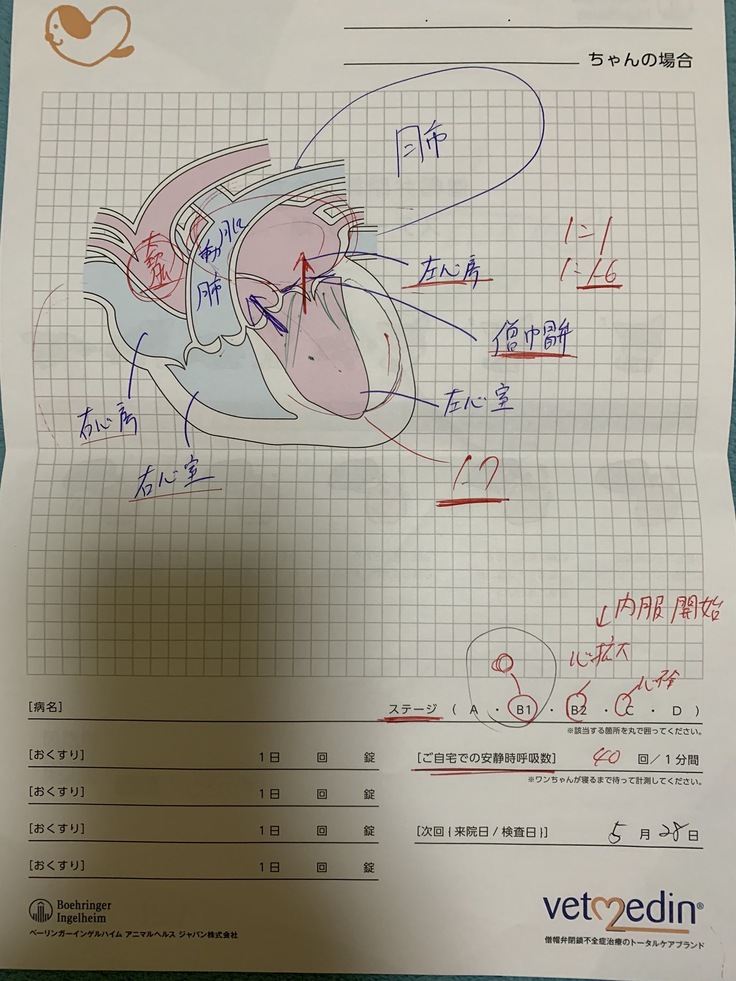 ちゃんの場合
肺
動脈
肺
大動脈
左心房
1:1
1:1.6
僧帽弁
左心室
右心房
右心室
1.7
↓内服開始
心拡大
心不全
[病名]
ステージ ( A ・ B1 ・ B2 ・ C ・ D )
※該当する箇所を丸で囲ってください。
[おくすり] 1日 回 錠
[ご自宅での安静時呼吸数] 40 回/1分間
※ワンちゃんが寝るまで待って計測してください。
[おくすり] 1日 回 錠
[おくすり] 1日 回 錠
[次回{来院日/検査日}] 5月28日
[おくすり] 1日 回 錠
Boehringer
Ingelheim
ベーリンガーインゲルハイム アニマルヘルス ジャパン株式会社
vetmedin®
僧帽弁閉鎖不全症治療のトータルケアブランド